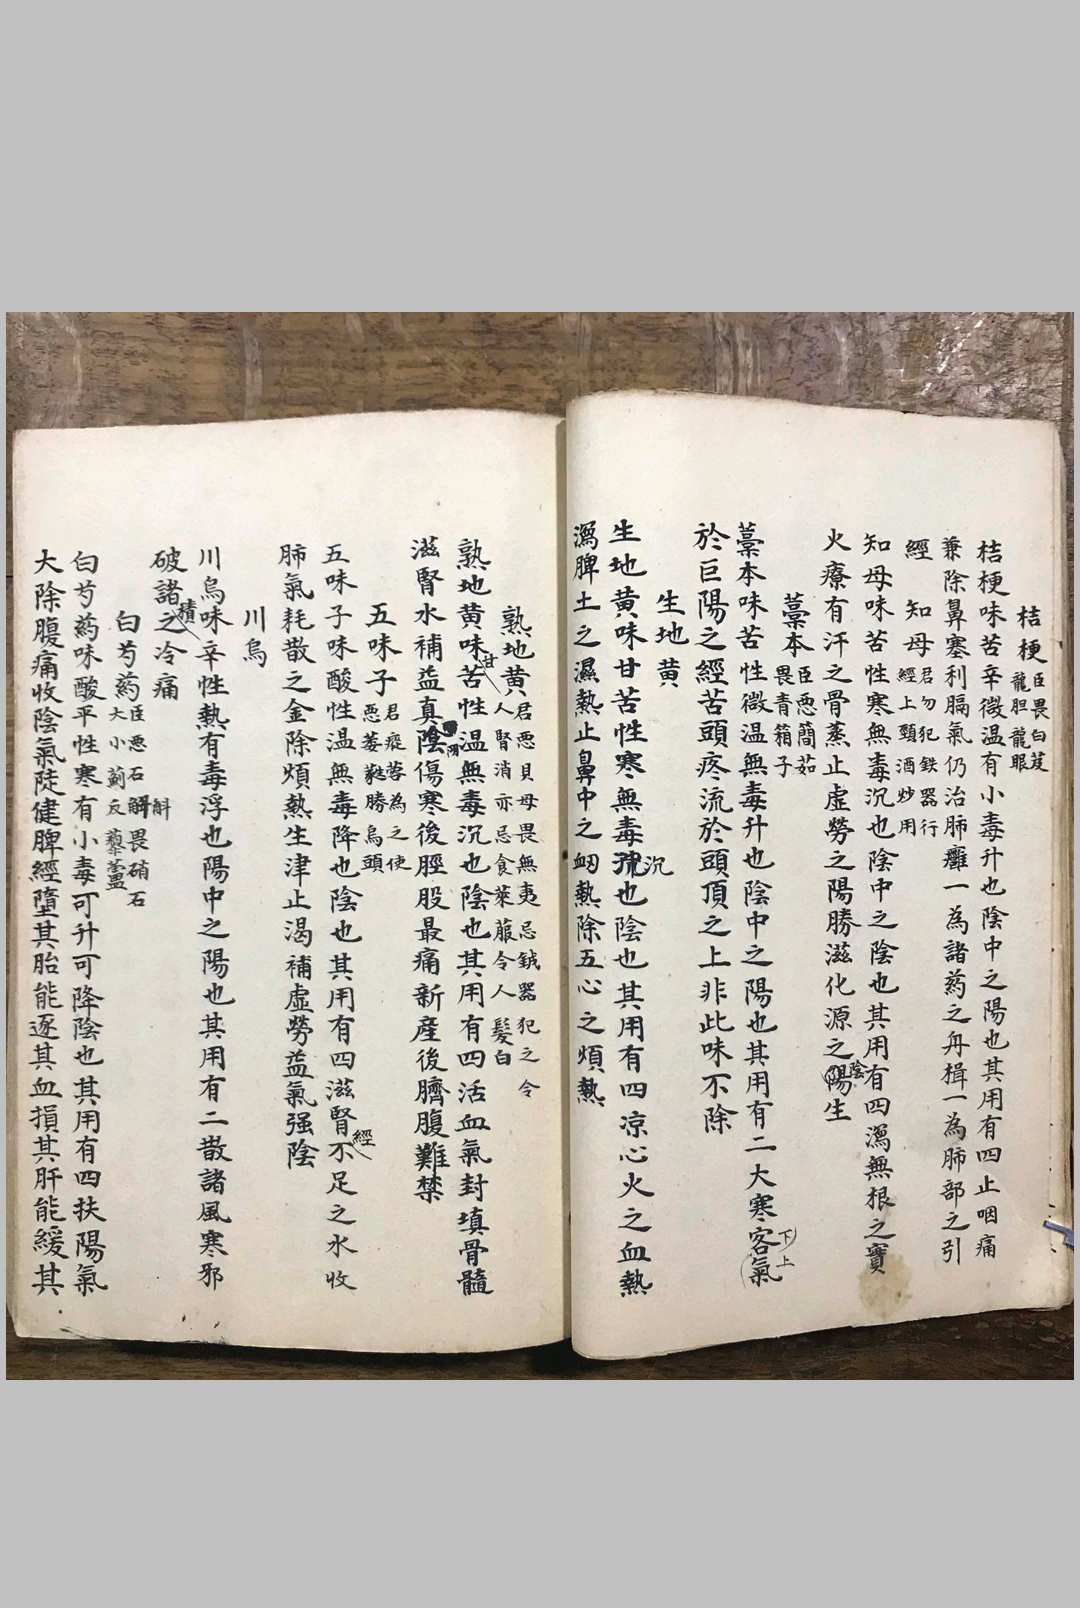 桔梗 臣畏白芨龍胆龍眼
桔梗味苦辛微温有小毒升也陰中之陽也其用有四止咽痛
兼除鼻塞利膈氣仍治肺癰一為諸葯之舟楫一為肺部之引
經
知母 君勿犯鉄器行經上頸酒炒用
知母味苦性寒無毒沉也陰中之陰也其用有四瀉無根之腎
火療有汗之骨蒸止虛勞之陽勝滋化源之陽陰生
藁本 臣悪䕡茹畏青箱子
藁本味苦性微温無毒升也陰中之陽也其用有二大寒客氣下上
於巨陽之經苦頭疼流於頭頂之上非此味不除
生地黄
生地黄味甘苦性寒無毒沉也陰也其用有四凉心火之血熱
瀉脾土之濕熱止鼻中之衂熱除五心之煩熱
熟地黄 君悪貝母畏無夷忌鉞器犯之令人腎消亦忌食萊菔令人髮白
熟地黄味甘苦性温無毒沉也陰也其用有四活血氣封填骨髓
滋腎水補益真陰傷寒後脛股最痛新産後臍腹難禁
五味子 君蓯蓉為之使悪萎蕤勝烏頭
五味子味酸性温無毒降也陰也其用有四滋腎經不足之水收
肺氣耗散之金除煩熱生津止渴補虛勞益氣强陰
川烏
川烏味辛性熱有毒浮也陽中之陽也其用有二散諸風寒邪
破諸積之冷痛
白芍葯 臣悪石斛畏硝石大小薊反藜蘆
白芍葯味酸平性寒有小毒可升可降陰也其用有四扶陽氣
大除腹痛收陰氣陡健脾經墮其胎能逐其血損其肝能緩其